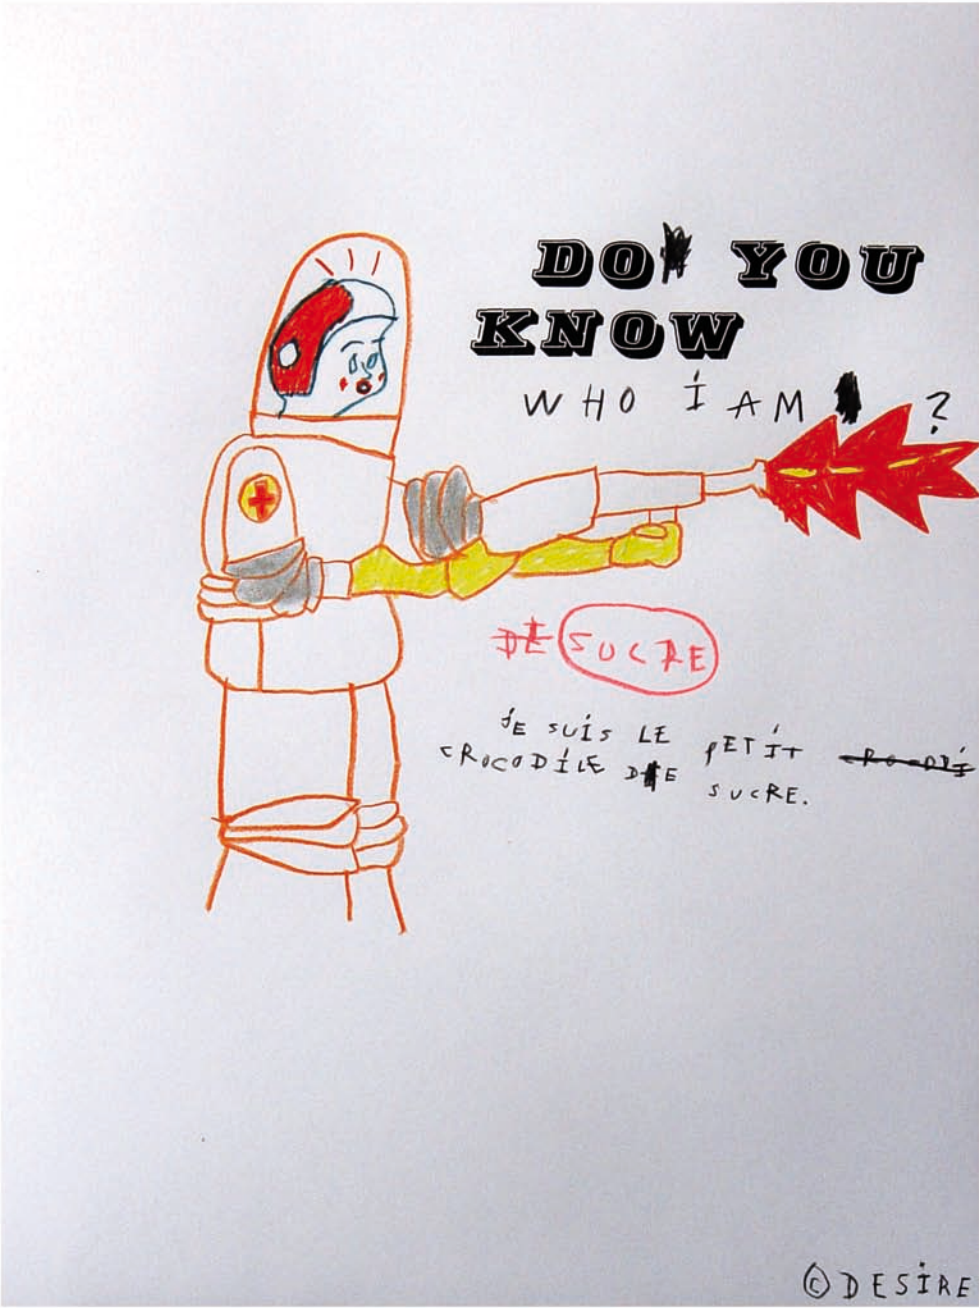 DO YOU
KNOW
WHO i AM ?
DE SUCRE
JE SUiS LE PETiT CRoCoDi
CRoCoDiLE DE
SUCRE.
© DESiRE